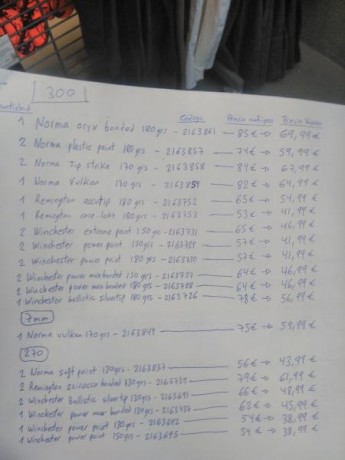 300
Cantidad Código Precio antiguo Precio
1 Norma oryx bonded 180grs - 2163861 - 85€ → 69,99€
2 Norma plastic point 180grs - 2163857 - 74€ → 59,99€
2 Norma Tip strike 170grs - 2163858 - 84€ → 67,99€
1 Norma Vulkan 170grs - 2163859 - 82€ → 64,99€
1 Remington accutip 180grs - 2163752 - 65€ → 54,99€
1 Remington core-lokt 180grs - 2163753 - 53€ → 41,99€
2 Winchester extreme point 150grs - 2163731 - 65€ → 46,99€
2 Winchester power point 150grs - - 57€ → 41,99€
2 Winchester power point 180grs - - 57€ → 41,99€
2 Winchester power max bonded 150grs - - 64€ → 46,99€
2 Winchester power max bonded 180grs - - 64€ → 46,99€
1 Winchester ballistic silvertip 180grs - 2163726 - 78€ → 56,99€
7mm
1 Norma vulkan 170grs - 2163849 - 75€ → 59,99€
270
2 Norma soft point 130grs - 2163837 - 56€ → 43,99€
2 Remington scirocco bonded 130grs - - 79€ → 61,99€
2 Winchester Ballistic silvertip 130grs - 2163691 - 66€ → 48,99€
1 Winchester power max bonded 130grs - - 62€ → 45,99€
1 Winchester power point 130grs - 2163692 - 54€ → 38,99€
1 Winchester power point 150grs - 2163695 - 54€ → 38,99€